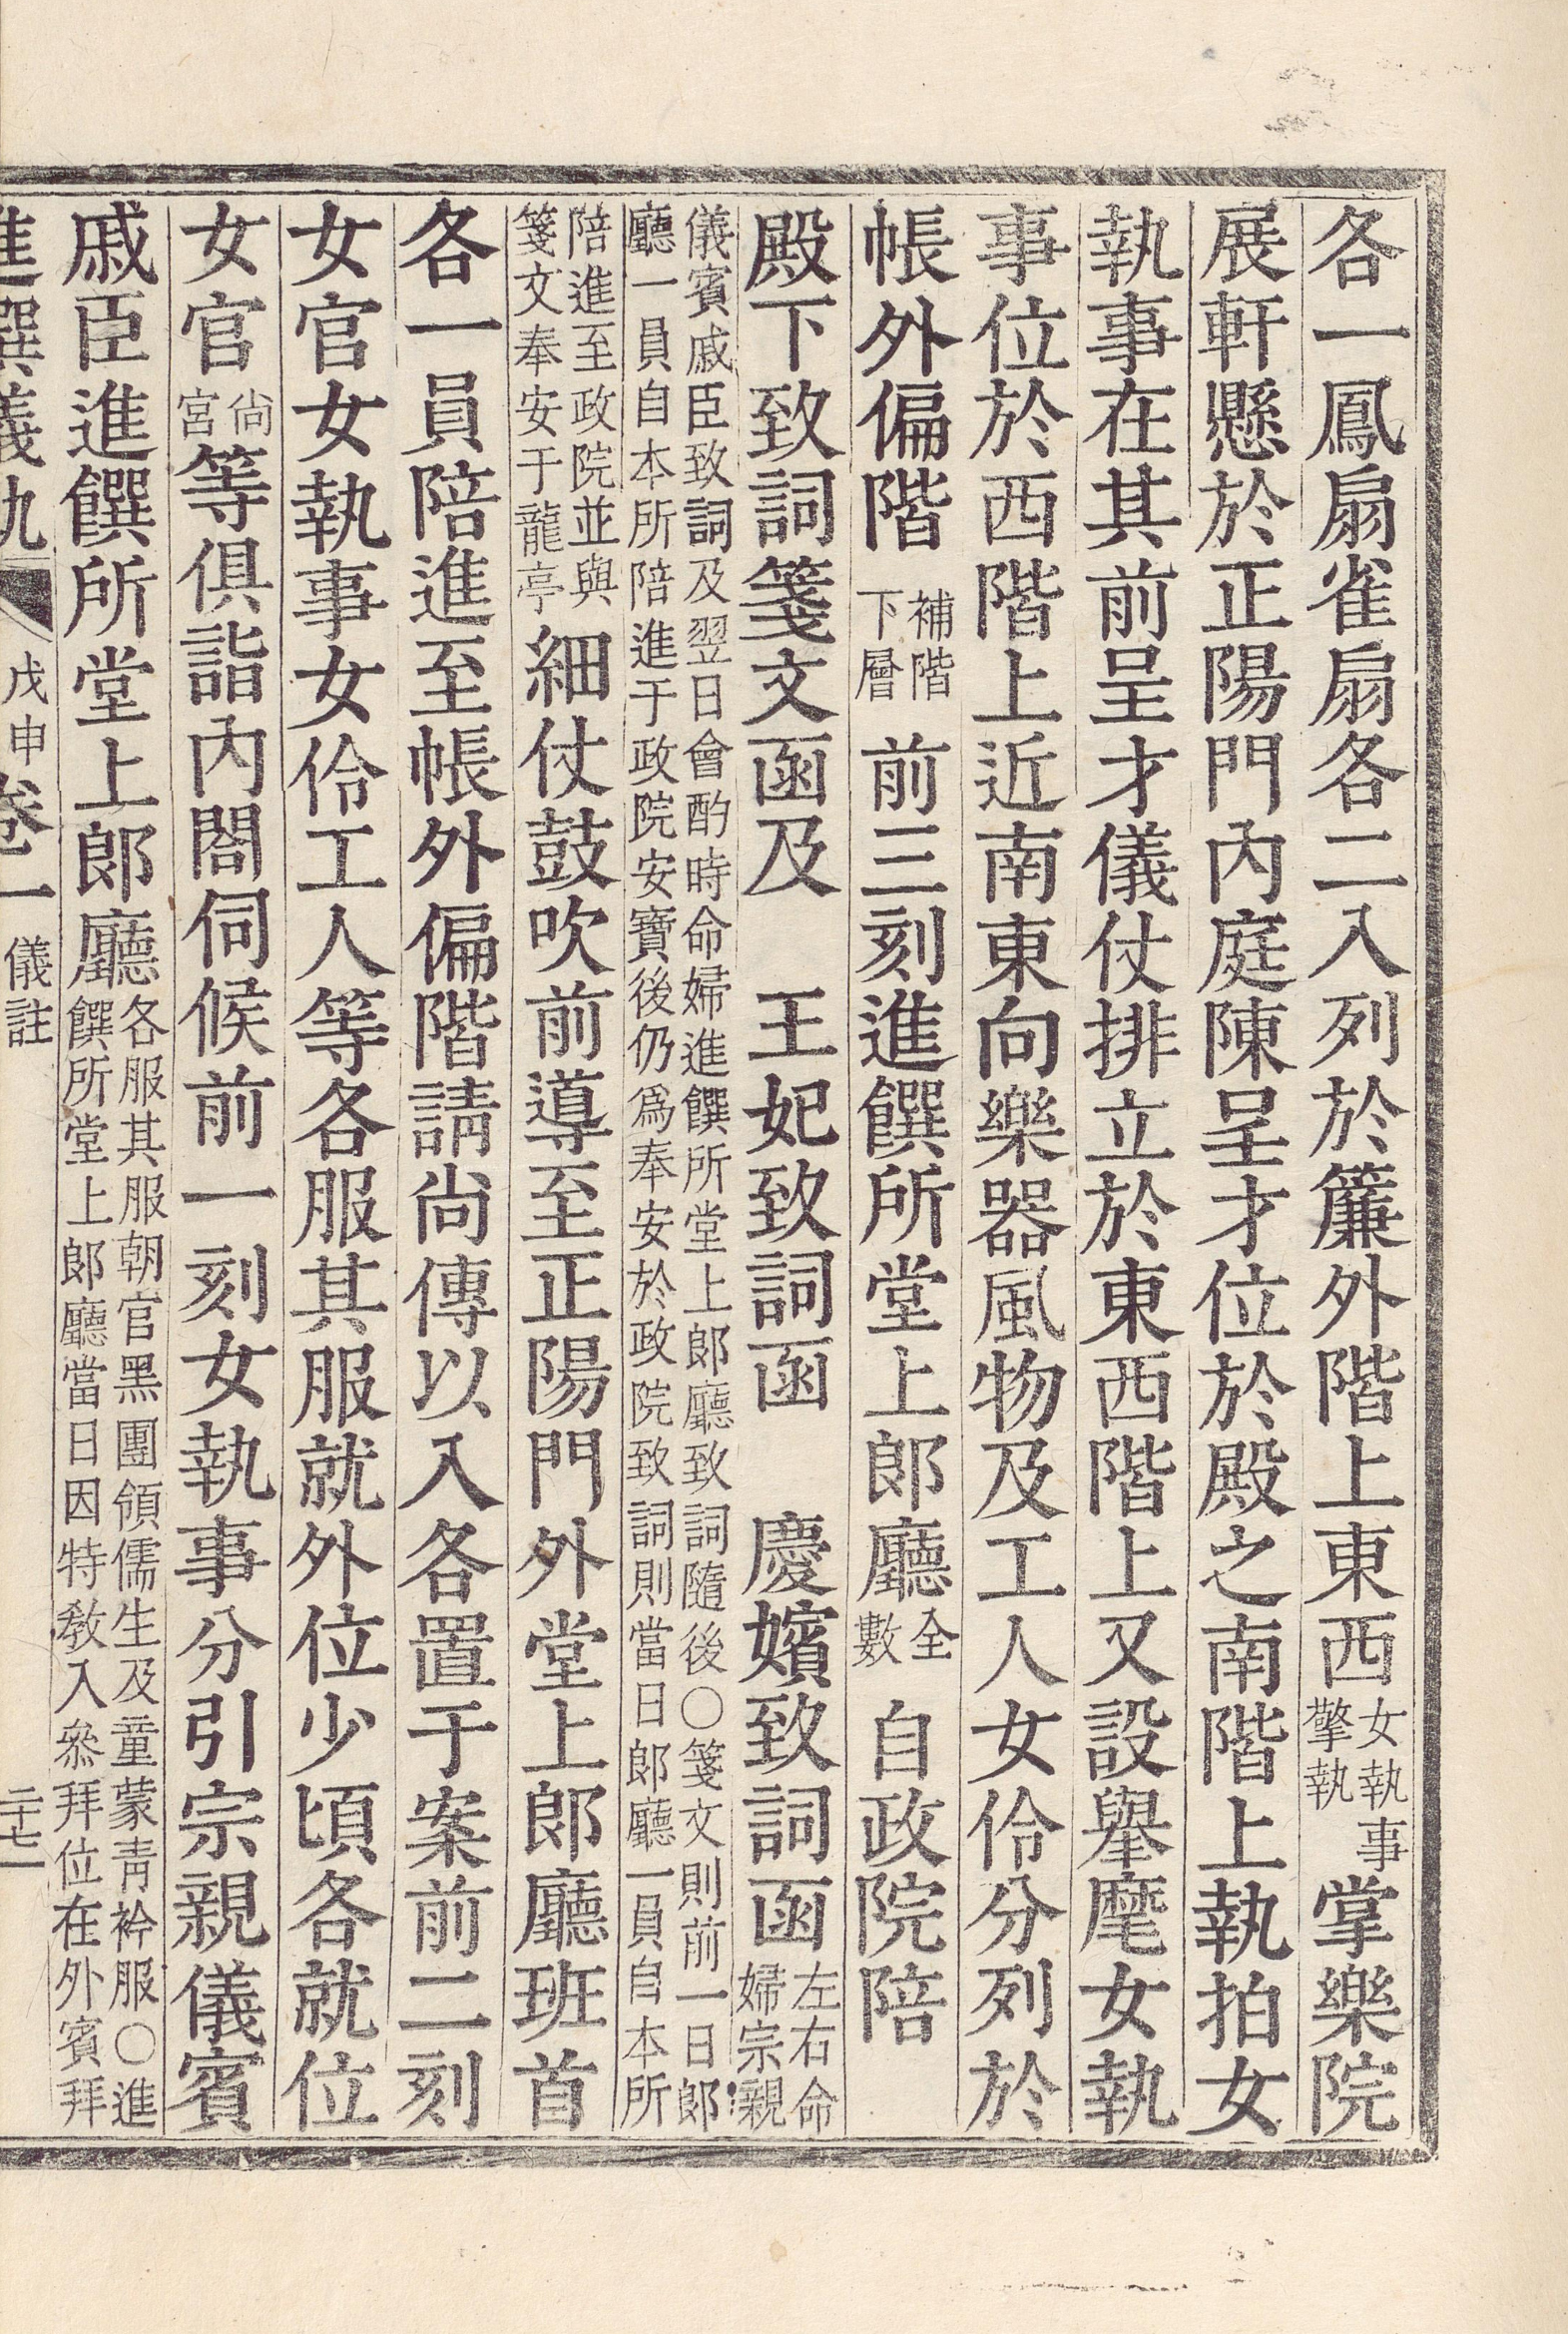 各一鳳扇雀扇各二入列於簾外階上東西女執事擎執掌樂院
展軒懸於正陽門內庭陳呈才位於殿之南階上執拍女
執事在其前呈才儀仗排立於東西階上又設擧麾女執
事位於西階上近南東向樂器風物及工人女伶分列於
帳外偏階補階下層前三刻進饌所堂上郎廳全數自政院陪
殿下致詞箋文函及 王妃致詞函 慶嬪致詞函左右命婦宗親
儀賓戚臣致詞及翌日會酌時命婦進饌所堂上郎廳致詞隨後○箋文則前一日郎
廳一員自本所陪進于政院安寶後仍爲奉安於政院致詞則當日郎廳一員自本所
陪進至政院並與箋文奉安于龍亭細仗鼓吹前導至正陽門外堂上郎廳班首
各一員陪進至帳外偏階請尙傳以入各置于案前二刻
女官女執事女伶工人等各服其服就外位少頃各就位
女官尙宮等俱詣內閤伺候前一刻女執事分引宗親儀賓
戚臣進饌所堂上郎廳各服其服朝官黑團領儒生及童蒙靑衿服○進饌所堂上郎廳當日因特敎入叅拜位在外賓拜
進饌儀軌 戊申卷一 儀註 二十七